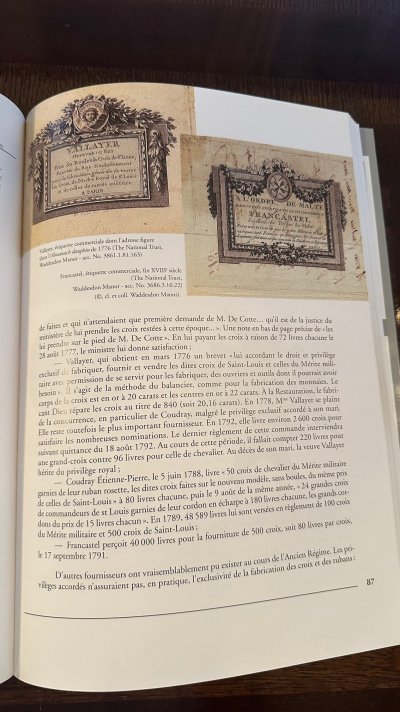 VALLAYER
A PARIS.
A L'ORDRE DE MALTE
FRANCASTEL
Vallayer, étiquette commerciale dont l'adresse figure
dans l'Almanach dauphin de 1776 (The National Trust,
Waddesdon Manor - acc. No. 3861.1.81.163)
Francastel, étiquette commerciale, fin XVIIIe siècle
(The National Trust,
Waddesdon Manor - acc. No. 3686.3.10.22)
(©, cl. et coll. Waddesdon Manor).
de faites et qui n'attendaient que première demande de M. De Cotte… qu'il est de la justice du
ministère de lui prendre les croix restées à cette époque… ». Une note en bas de page précise de « les
lui prendre sur le pied de M. De Cotte ». En lui payant les croix à raison de 72 livres chacune le
28 août 1777, le ministre lui donne satisfaction ;
— Vallayer, qui obtient en mars 1776 un brevet « lui accordant le droit et privilège
exclusif de fabriquer, fournir et vendre les dites croix de Saint-Louis et celles du Mérite mili-
taire avec permission de se servir pour les fabriquer, des ouvriers et outils dont il pourrait avoir
besoin ». Il s'agit de la méthode du balancier, comme pour la fabrication des monnaies. Le
corps de la croix est en or à 20 carats et les centres en or à 22 carats. À la Restauration, le fabri-
cant Dieu répare les croix au titre de 840 (soit 20,16 carats). En 1778, Mme Vallayer se plaint
de la concurrence, en particulier de Coudray, malgré le privilège exclusif accordé à son mari.
Elle reste toutefois le plus important fournisseur. En 1792, elle livre environ 2 600 croix pour
satisfaire les nombreuses nominations. Le dernier règlement de cette commande interviendra
suivant quittance du 18 août 1792. Au cours de cette période, il fallait compter 220 livres pour
une grand-croix contre 96 livres pour celle de chevalier. Au décès de son mari, la veuve Vallayer
hérite du privilège royal ;
— Coudray Étienne-Pierre, le 5 juin 1788, livre « 50 croix de chevalier du Mérite militaire
garnies de leur ruban rosette, les dites croix faites sur le nouveau modèle, sans boules, du même prix
de celles de Saint-Louis » à 80 livres chacune, puis le 9 août de la même année, « 24 grandes croix
de commandeurs de st Louis garnies de leur cordon en écharpe à 180 livres chacune, les grands cor-
dons du prix de 15 livres chacun ». En 1789, 48 589 livres lui sont versées en règlement de 100 croix
du Mérite militaire et 500 croix de Saint-Louis ;
— Francastel perçoit 40 000 livres pour la fourniture de 500 croix, soit 80 livres par croix,
le 17 septembre 1791.
D'autres fournisseurs ont vraisemblablement pu exister au cours de l'Ancien Régime. Les pri-
vilèges accordés n'assuraient pas, en pratique, l'exclusivité de la fabrication des croix et des rubans :
87